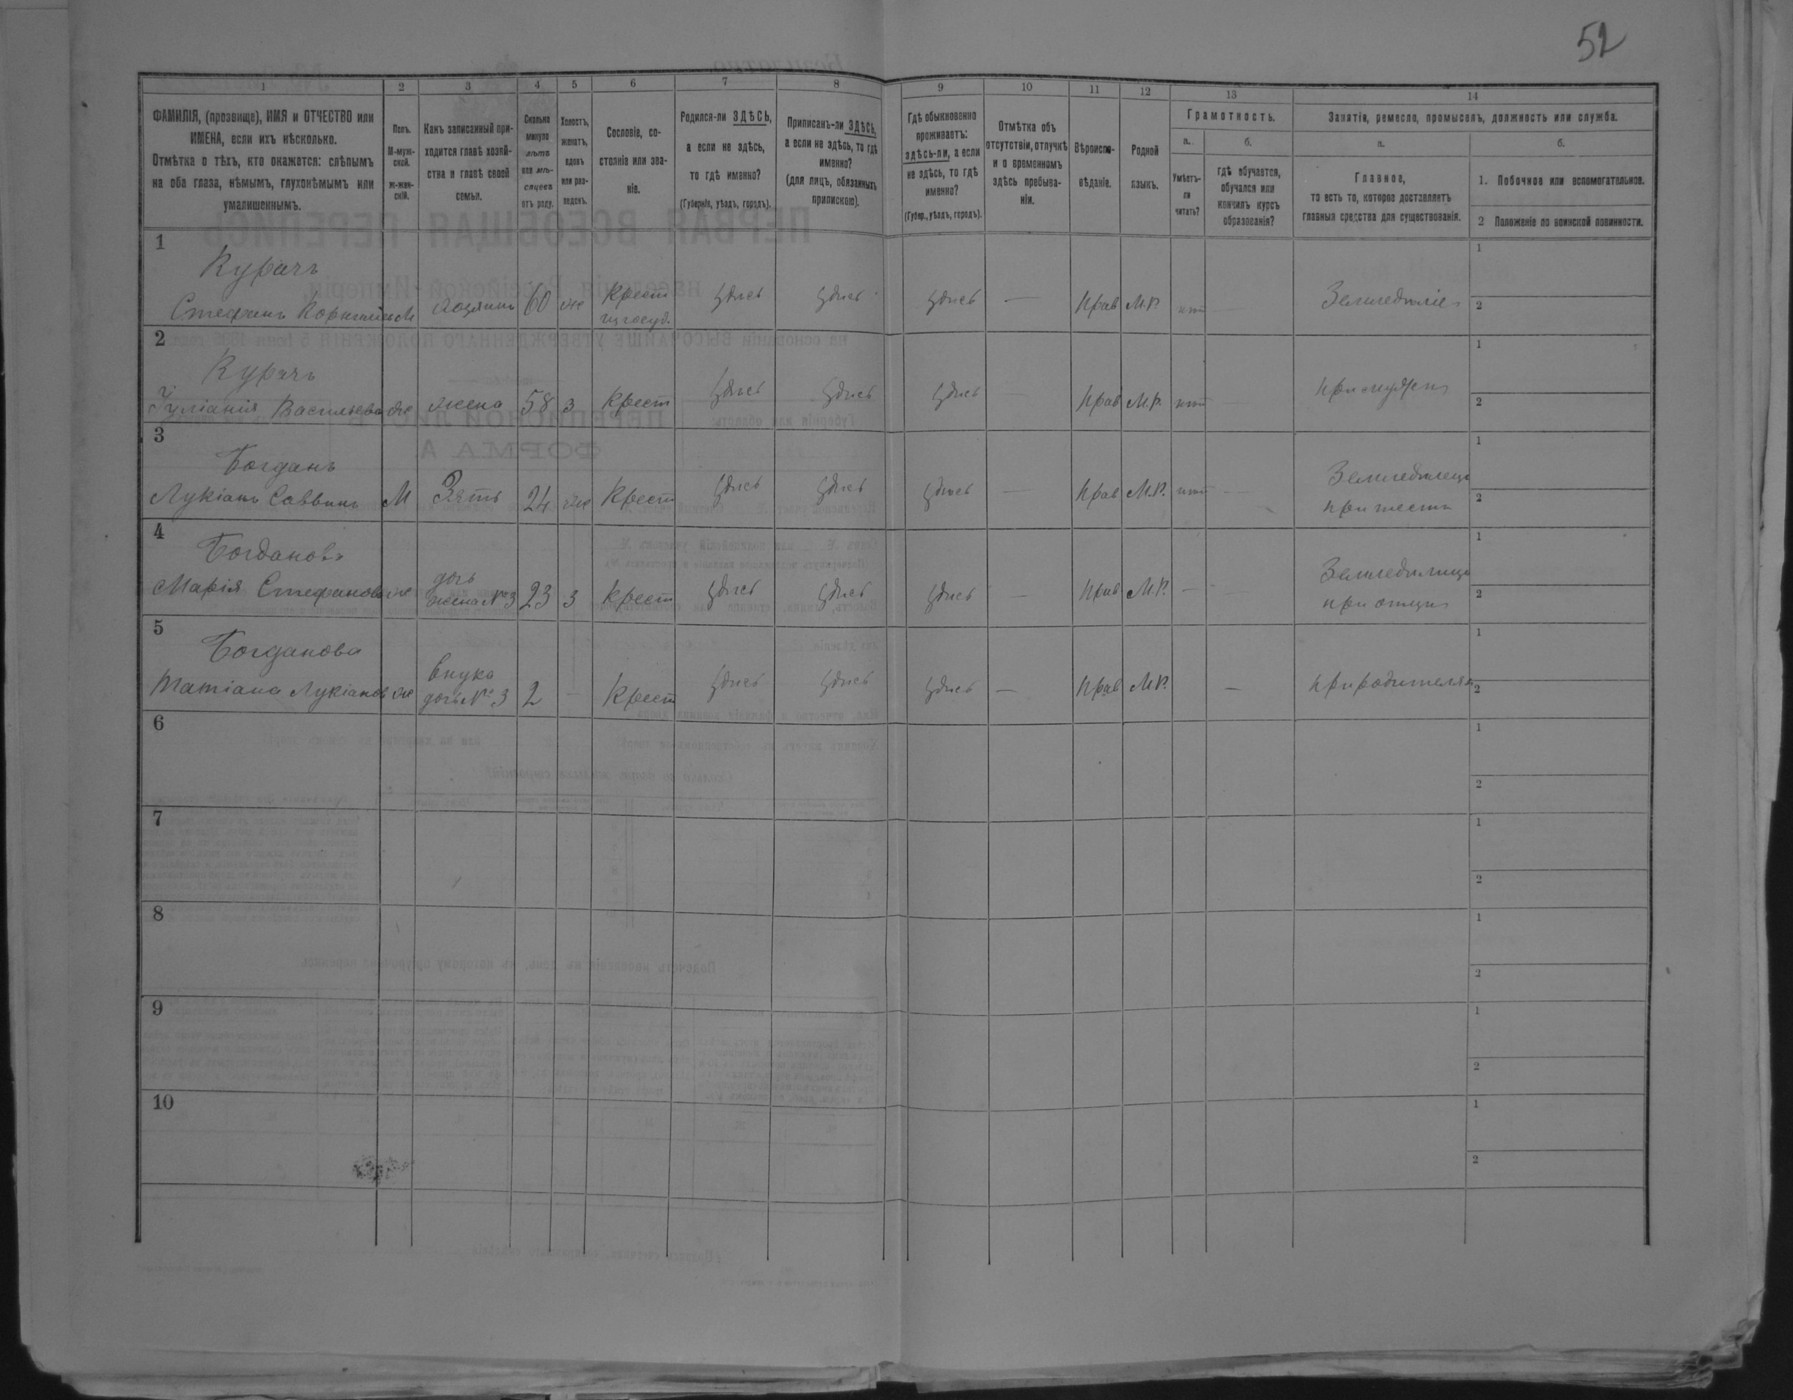 52
1 2 3 4 5 6 7 8 9 10 11 12 13 14
ФАМИЛІЯ, (прозвище), ИМЯ и ОТЧЕСТВО или
ИМЕНА, если ихъ нѣсколько.
Отмѣтка о тѣхъ, кто окажется: слѣпымъ
на оба глаза, нѣмымъ, глухонѣмымъ или
умалишеннымъ.
Полъ.
М-муж-
ской.
ж-жен-
скій.
Какъ записанный при-
ходится главѣ хозяй-
ства и главѣ своей
семьи.
Сколько
минуло
лѣтъ
или мѣ-
сяцевъ
отъ роду.
Холостъ,
женатъ,
вдовъ
или раз-
веденъ.
Сословіе, со-
стояніе или зва-
ніе.
Родился-ли ЗДѢСЬ,
а если не здѣсь,
то гдѣ именно?
(Губернія, уѣздъ, городъ).
Приписанъ-ли ЗДѢСЬ,
а если не здѣсь, то гдѣ
именно?
(для лицъ, обязанныхъ
припискою).
Гдѣ обыкновенно
проживаетъ:
здѣсь-ли, а если
не здѣсь, то гдѣ
именно?
(Губер., уѣздъ, городъ).
Отмѣтка объ
отсутствіи, отлучкѣ
и о временномъ
здѣсь пребыва-
ніи.
Вѣроиспо-
вѣданіе.
Родной
языкъ.
Грамотность.
а.
Умѣетъ-
ли
читать?
б.
гдѣ обучается,
обучался или
кончилъ курсъ
образованія?
Занятіе, ремесло, промыселъ, должность или служба.
а.
Главное,
то есть то, которое доставляетъ
главныя средства для существованія.
б.
1. Побочное или вспомогательное.
2 Положеніе по воинской повинности.
1
Курачъ
Стефанъ М хозяинъ 60 же крест здѣсь здѣсь здѣсь — прав М.Р. нѣт — Земледѣліе
1
2
2
Курачъ
Іуліанія Васильева же жена 58 з крест здѣсь здѣсь здѣсь — прав М.Р. нѣт — при мужѣ
1
2
3
Богданъ
Лукіанъ Саввинъ М Зять 24 же крест здѣсь здѣсь здѣсь — прав М.Р. нѣт — Земледѣлецъ
при тестѣ
1
2
4
Богданова
Марія Стефанова же дочь
жена № 3 23 з крест здѣсь здѣсь здѣсь — прав М.Р. — — Земледѣлица
при отцѣ
1
2
5
Богданова
Татіана Лукіанов же внука
дочь № 3 2 — крест здѣсь здѣсь здѣсь — прав М.Р. — при родителях
1
2
6
1
2
7
1
2
8
1
2
9
1
2
10
1
2